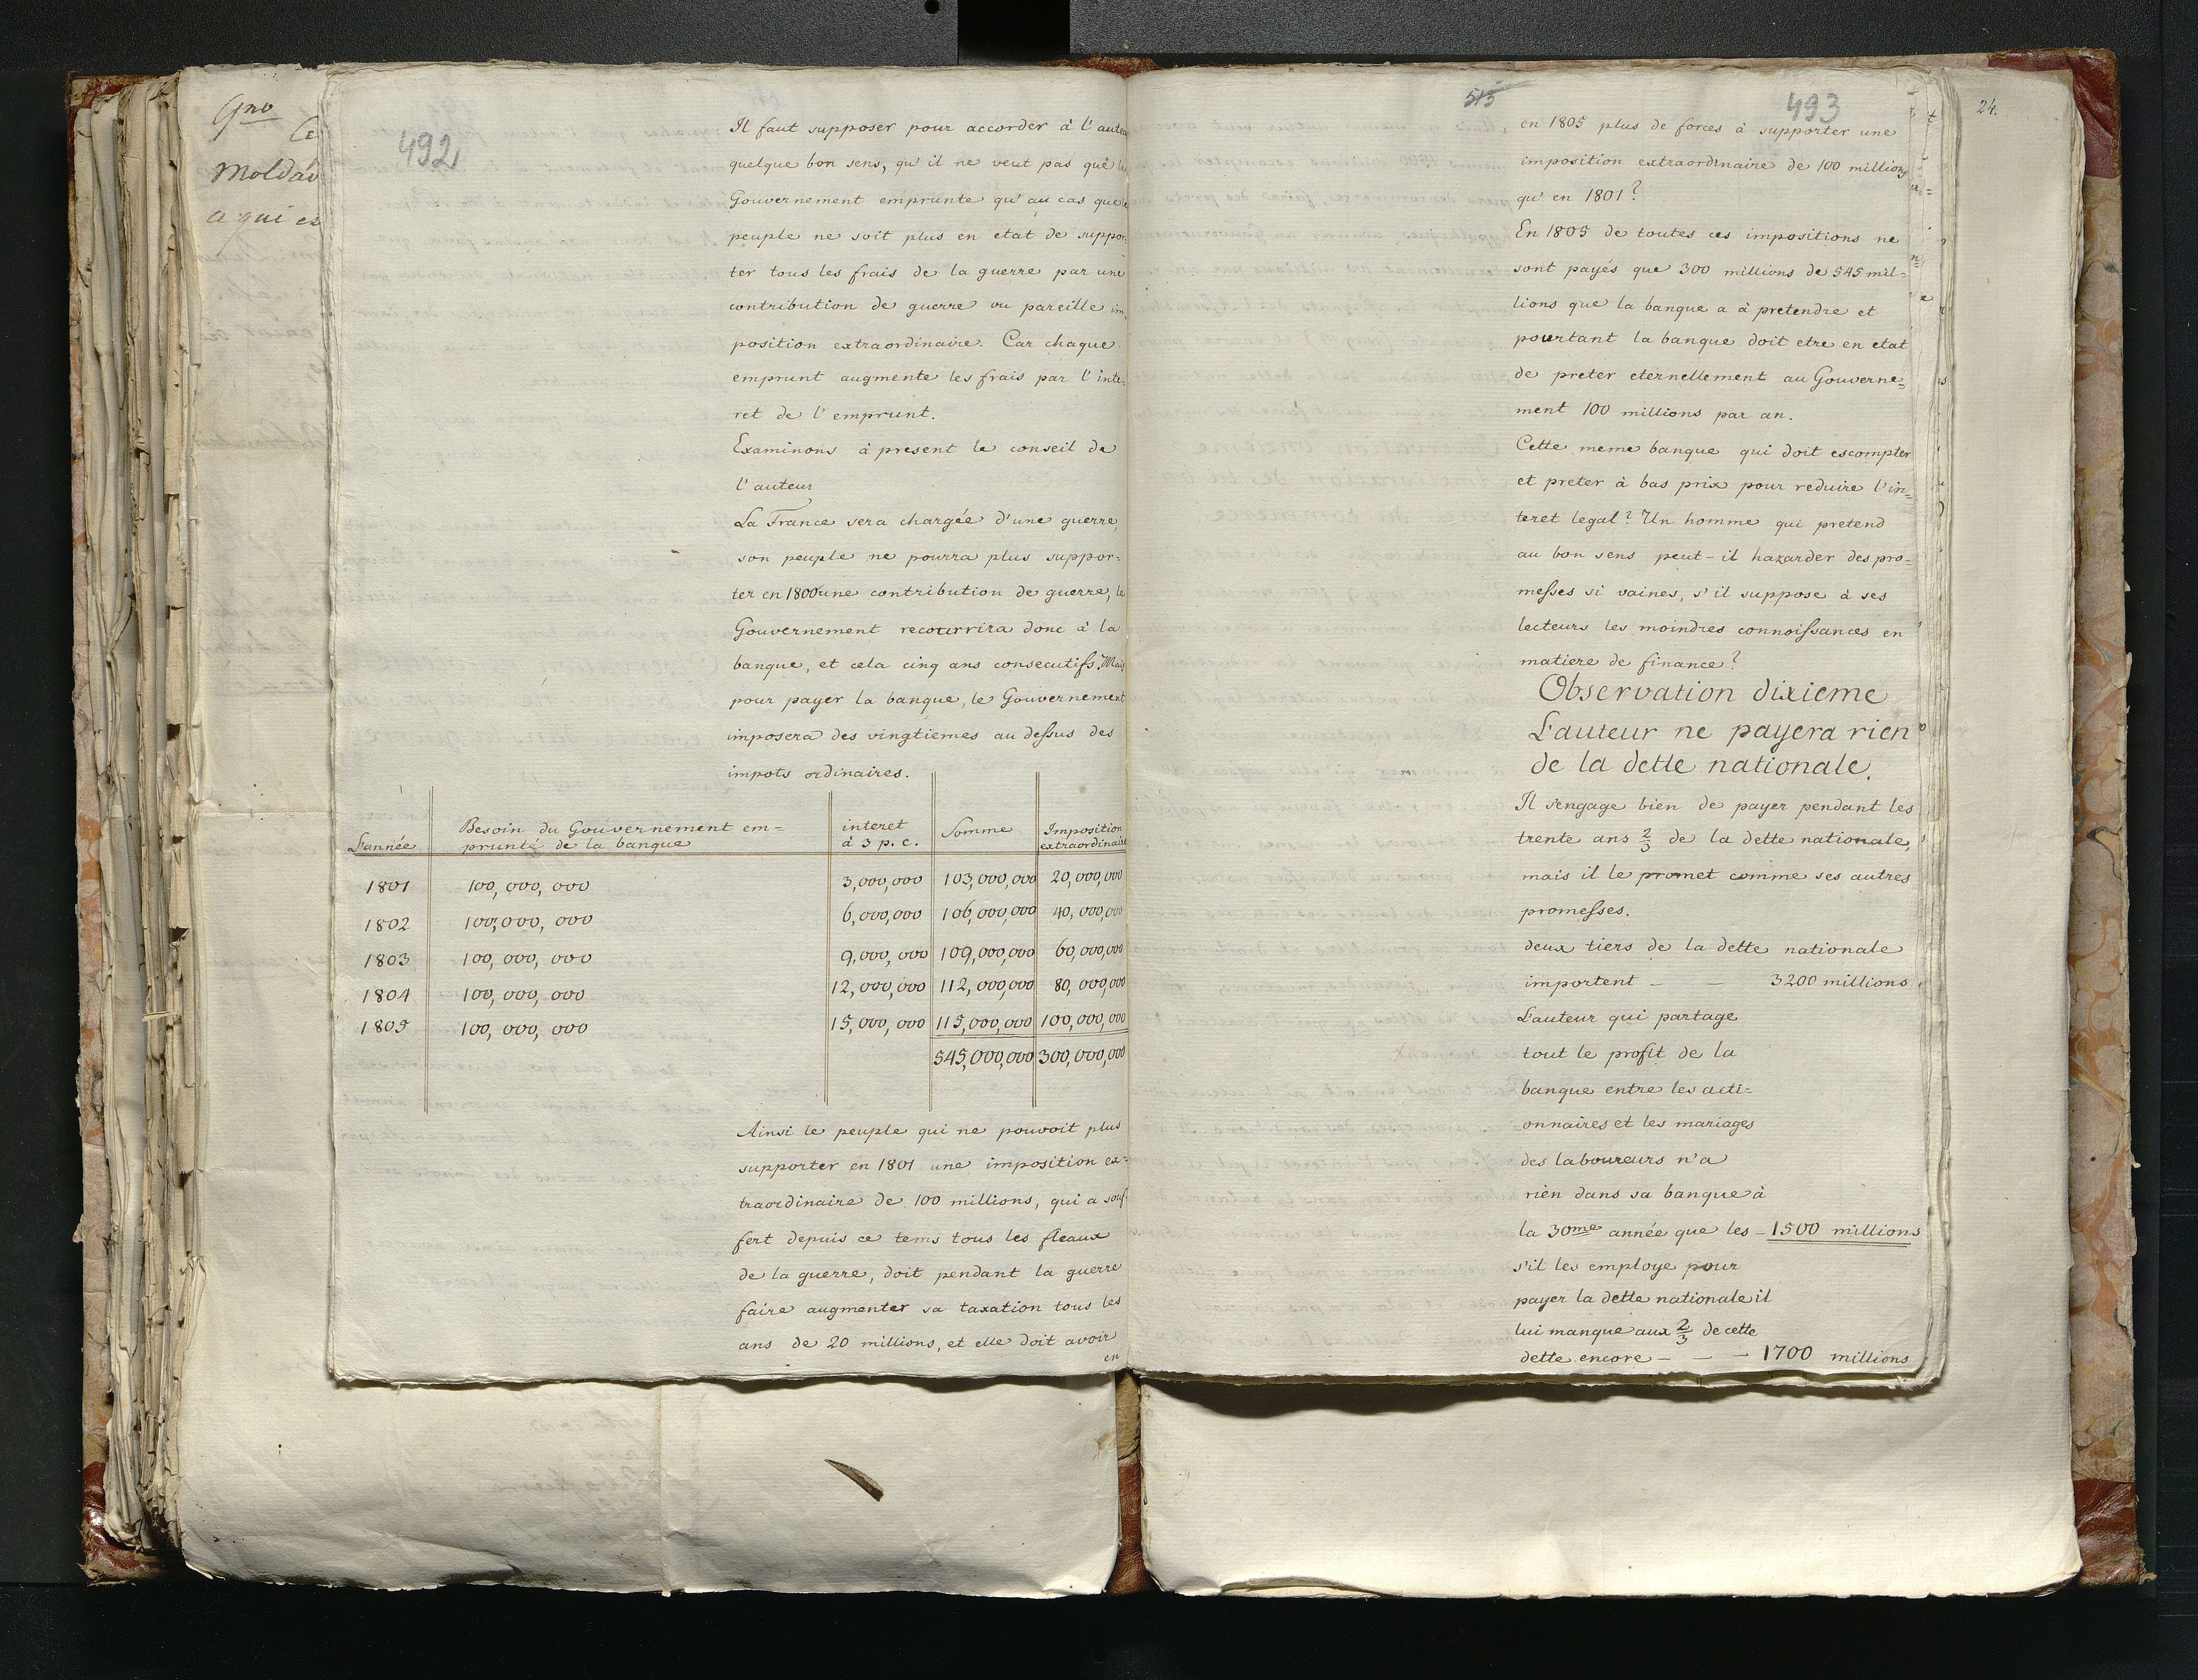 Gno
Ce
Moldav
a qui es
492
Il faut supposer pour accorder à l'auteu
quelque bon sens, qu'il ne veut pas que le
Gouvernement emprunte qu'au cas que le
peuple ne soit plus en etat de suppor-
ter tous les frais de la guerre par une
contribution de guerre ou pareille im-
position extraordinaire. Car chaque
emprunt augmente les frais par l'inte-
ret de l'emprunt.
Examinons à present le conseil de
l'auteur
La France sera chargée d'une guerre,
son peuple ne pourra plus suppor-
ter en 1800 une contribution de guerre, le
Gouvernement recourrira donc à la
banque, et cela cinq ans consecutifs. Mais
pour payer la banque, le Gouvernement
imposera des vingtiemes au dessus des
impots ordinaires.
L'année Besoin du Gouvernement em= prunté de la banque interet à 3 p. c. Somme Imposition extraordinaire
1801 100,000,000 3,000,000 103,000,000 20,000,000
1802 100,000,000 6,000,000 106,000,000 40,000,000
1803 100,000,000 9,000,000 109,000,000 60,000,000
1804 100,000,000 12,000,000 112,000,000 80,000,000
1805 100,000,000 15,000,000 115,000,000 100,000,000
545,000,000 300,000,000
Ainsi le peuple qui ne pouvoit plus
supporter en 1801 une imposition ex-
traordinaire de 100 millions, qui a souf-
fert depuis ce tems tous les fleaux
de la guerre, doit pendant la guerre
faire augmenter sa taxation tous les
ans de 20 millions, et elle doit avoir
en
515
493
24.
en 1805 plus de forces à supporter une
imposition extraordinaire de 100 millions
qu'en 1801?
En 1805 de toutes ces impositions ne
sont payés que 300 millions de 545 mil=
lions que la banque a à pretendre et
pourtant la banque doit etre en etat
de preter eternellement au Gouverne=
ment 100 millions par an.
Cette meme banque qui doit escompter
et preter à bas prix pour reduire l'in=
teret legal? Un homme qui pretend
au bon sens peut-il hazarder des pro=
messes si vaines, s'il suppose à ses
lecteurs les moindres connoissances en
matiere de finance?
Observation dixieme
L'auteur ne payera rien
de la dette nationale.
Il s'engage bien de payer pendant les
trente ans 2/3 de la dette nationale,
mais il le promet comme ses autres
promesses.
deux tiers de la dette nationale
importent - - 3200 millions
L'auteur qui partage
tout le profit de la
banque entre les acti=
onnaires et les mariages
des laboureurs n'a
rien dans sa banque à
la 30me année que les - 1500 millions
s'il les employe pour
payer la dette nationale il
lui manque aux 2/3 de cette
dette encore - - - 1700 millions